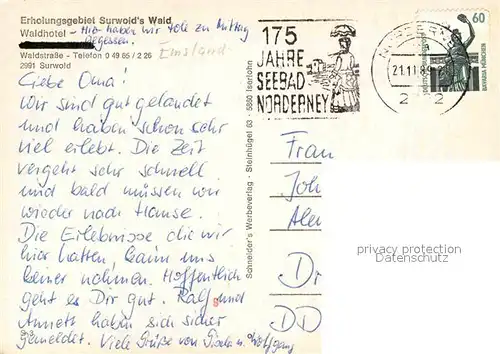 Erholungsgebiet Surwold's Wald
Waldhotel - Hier haben wir tolle zu Mittag
gegessen. Emsland
Waldstraße - Telefon 0 49 65 / 2 26
2991 Surwold
Liebe Oma!
Wir sind gut gelandet
und haben schon sehr
viel erlebt. Die Zeit
vergeht sehr schnell
und bald müssen wir
wieder nach Hause.
Die Erlebnisse die wir
hier hatten, kann uns
keiner nehmen. Hoffentlich
geht es Dir gut. Ralf und
Annett haben sich sicher
gemeldet. Viele Grüße von Gisela u. Wolfgang
Schneider's Werbeverlag - Steinhügel 63 - 5860 Iserlohn
175
JAHRE
SEEBAD
NORDERNEY
21.11.89
2 2
60
DEUTSCHE BUNDESPOST
BAVARIA MÜNCHEN
Frau
Joh
Alex
Dr
DD
privacy protection
Datenschutz